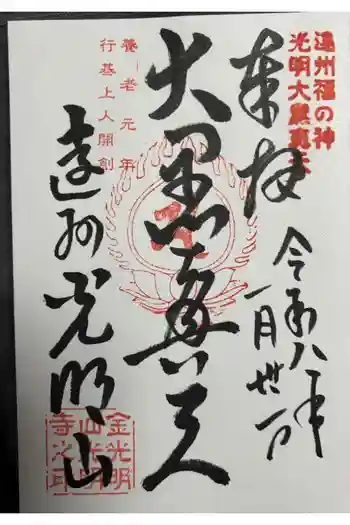 遠州福の神
光明大黒真天
奉拝
令和八年
一月
大黒真天
養老元年
行基上人開創
遠州光明山
金光明
山光明
寺之印